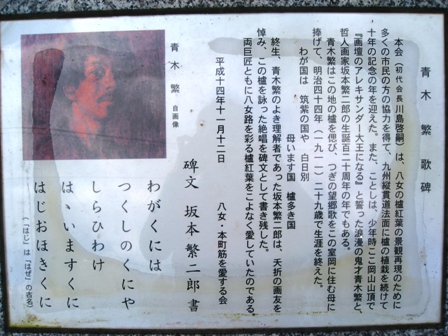 青木繁歌碑
本会（初代会長川島啓嗣）は、八女の櫨紅葉の景観再現のために
多くの市民の方の協力を得て、九州縦貫道法面に櫨の植栽を続けて
十年の記念の年を迎えた。また、ことしは、少年時ここ岡山山頂で
『画壇のアレキサンダー大王になる』と誓った浪漫の鬼才青木繁と、
哲人画家坂本繁二郎の生誕百二十周年の年でもある。
青木繁はこの地の櫨を偲び、つぎの望郷歌をこの室岡に住む母に
捧げて、明治四十四年（一九一一）二十九歳で生涯を終えた。
わが国は 筑紫の国や 白日別
母います国 櫨多き国
終生、青木繁のよき理解者であった坂本繁二郎は、夭折の画友を
悼み、この櫨を詠った絶唱を碑文として書き残した。
両巨匠ともに八女路を彩る櫨紅葉をこよなく愛していたのである。
平成十四年十一月十二日
八女・本町筋を愛する会
碑文 坂本繁二郎書
わがくには
つくしのくにや
しらひわけ
はゝいますくに
はじおほきくに
（「はじ」は「はぜ」の古名）
青木繁 自画像